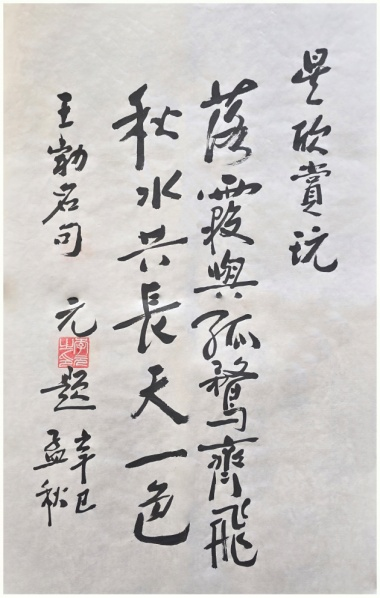 欣賞玩
落霞與孤鶩齊飛
秋水共長天一色
王勃名句 元題
辛巳
孟秋